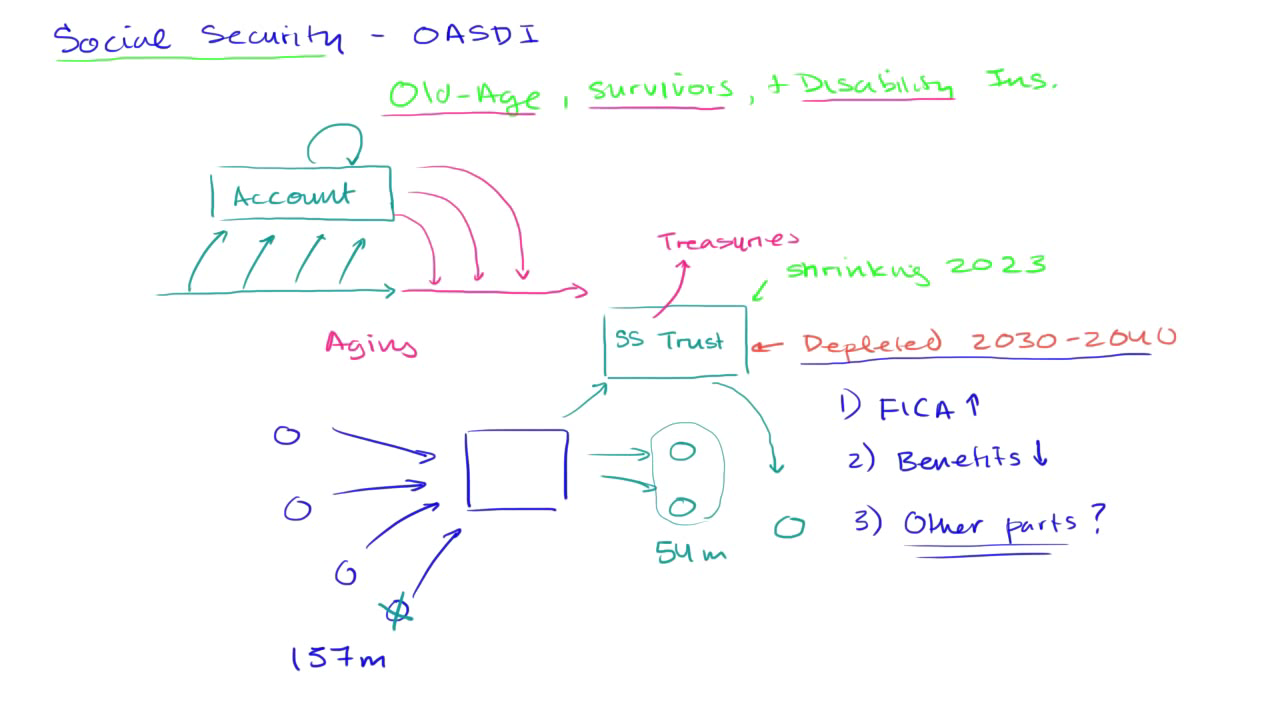 Social Security - OASDI
Old-Age, survivors, + Disability Ins.
Account
Treasuries
shrinking 2023
SS Trust
Depleted 2030-2040
Aging
1) FICA ↑
2) Benefits ↓
3) Other parts?
54m
157m